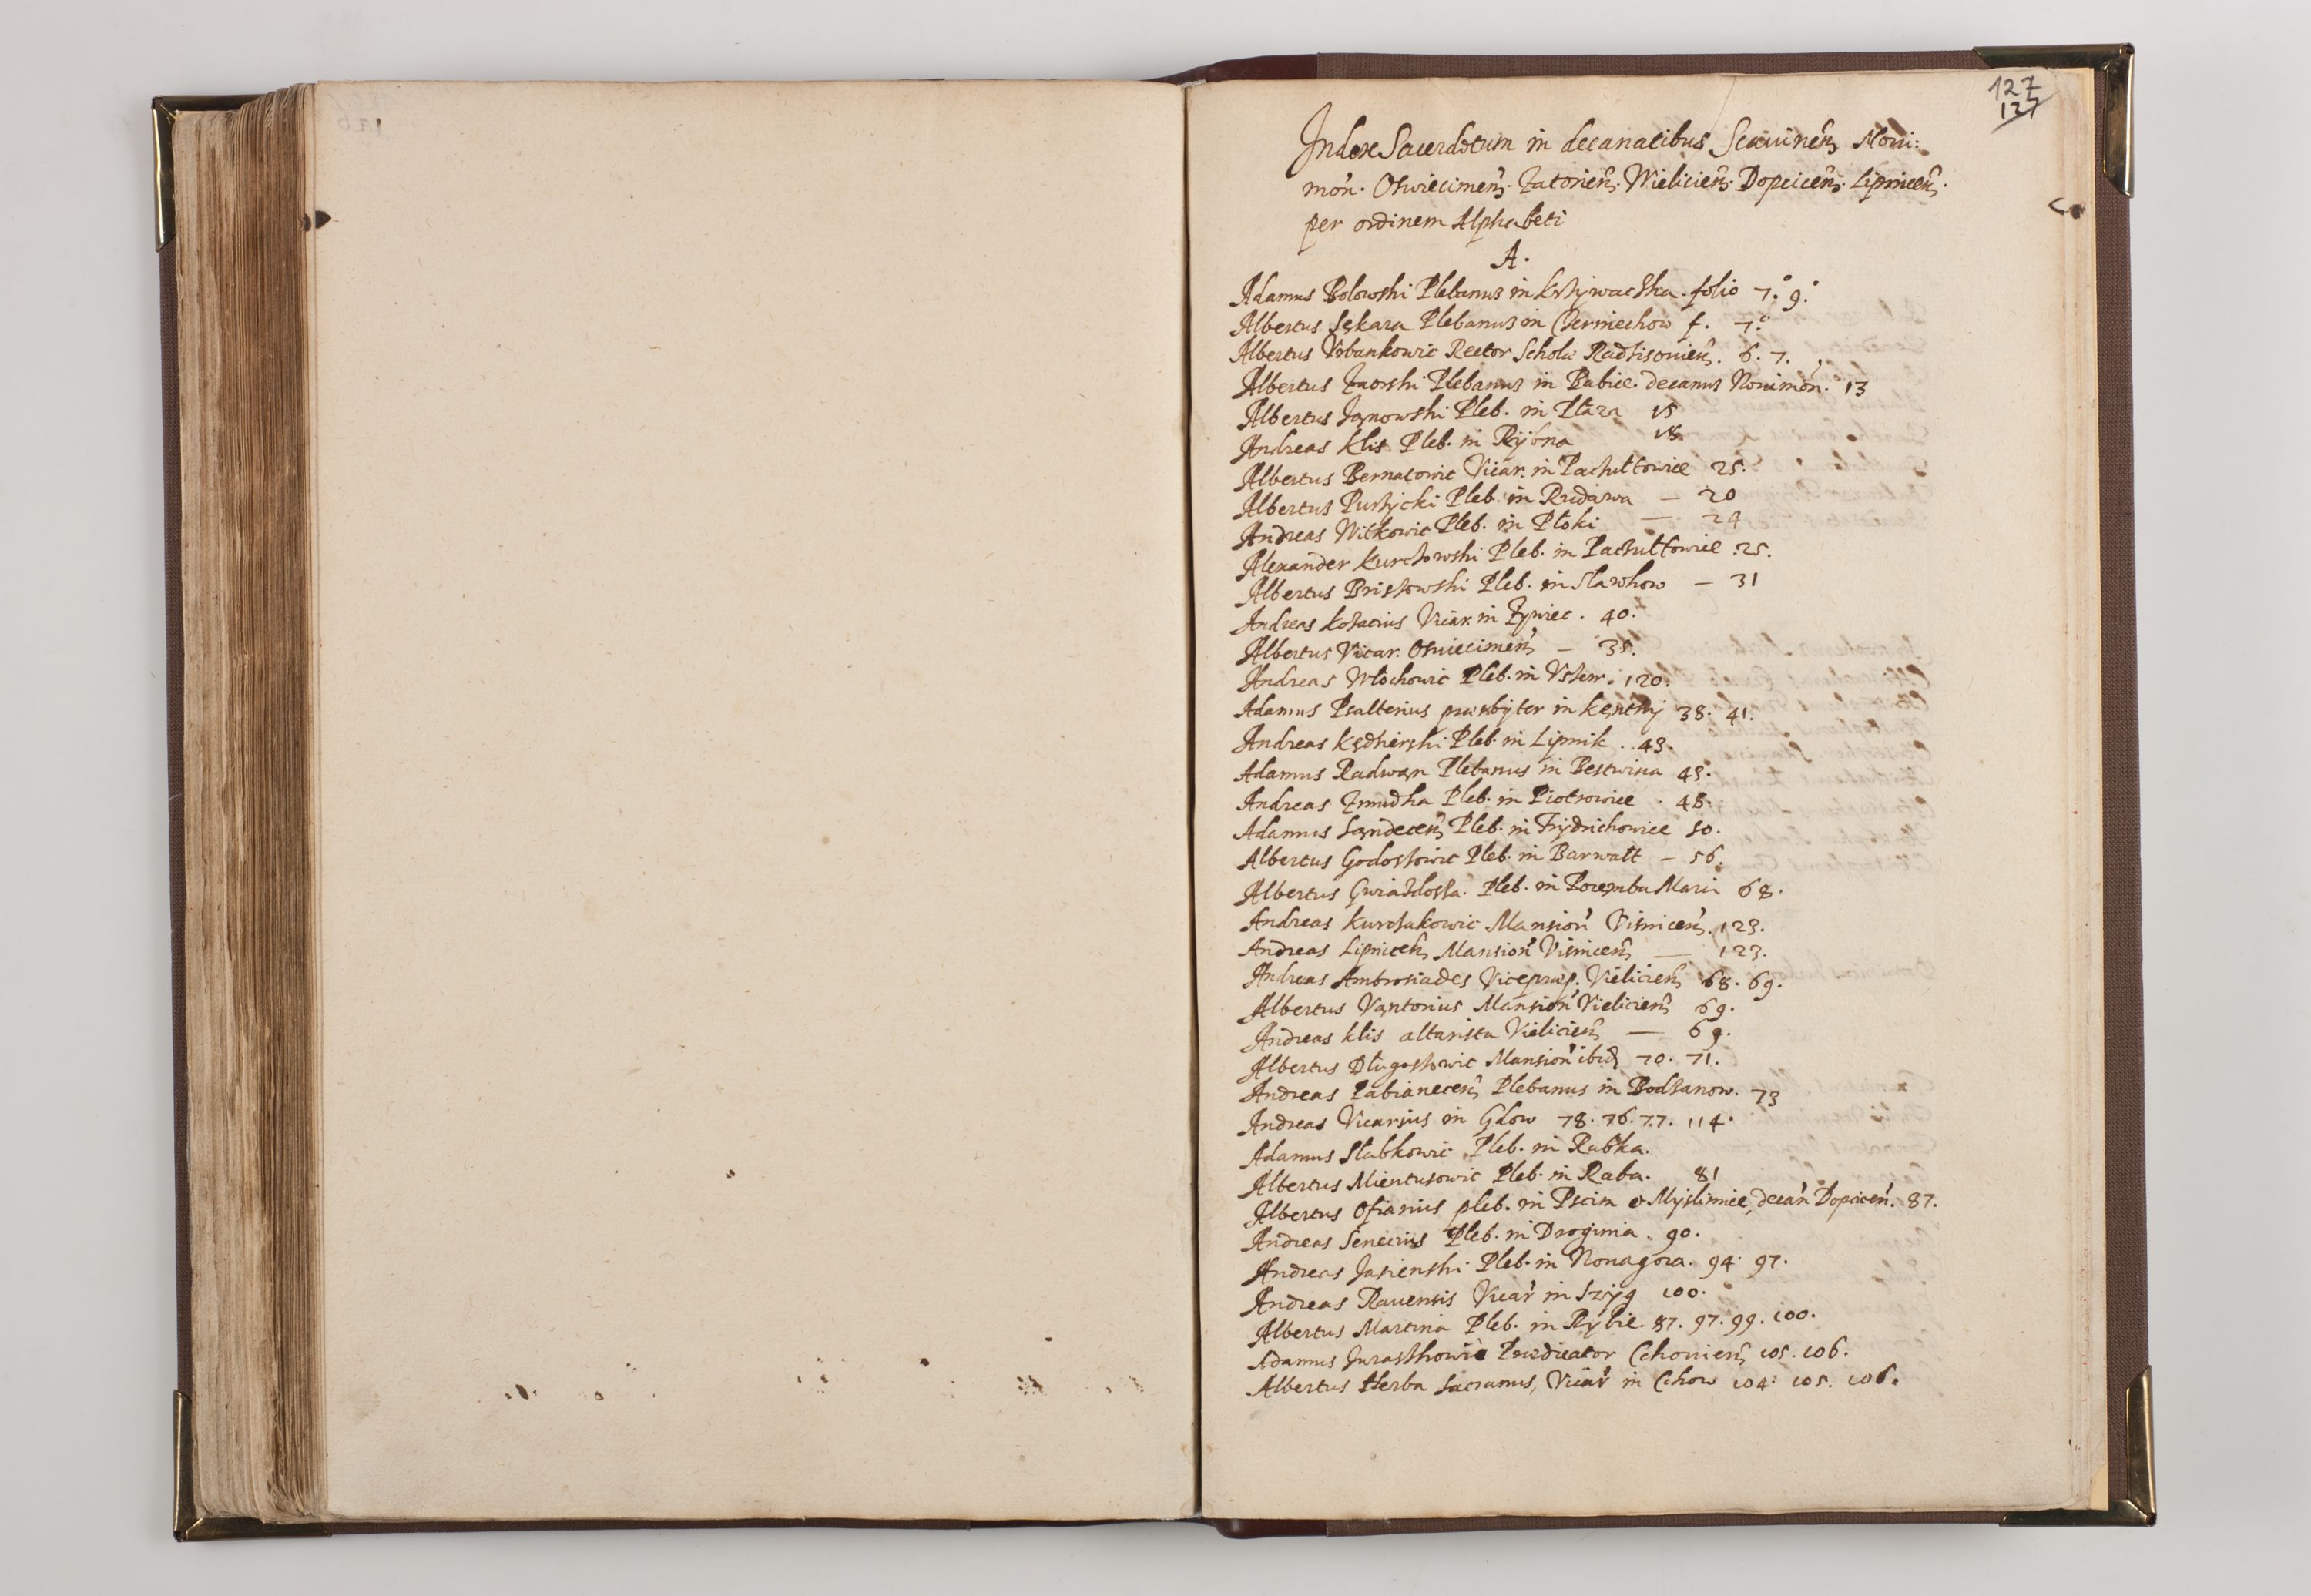 127
127
Index Sacerdotum in decanatibus Scauinen. Noui:
mon. Oswiecimen. Zatorien. Wielicien. Dopcicen. Lipnicen.
per ordinem Alphabeti
A.
Adamus Bolowski Plebanus in Krzywaczka. folio 7. 9.
Albertus Sękara Plebanus in Czerniechow f. 7.
Albertus Vrbankowic Rector Schola Radzisouien. 6. 7.
Albertus Plebanus in Babice. decanus Nouimon. 13
Albertus Janowski Pleb. in Płaza 15
Andreas Klis Pleb. in Rybna 18
Albertus Bernatowic Vicar. in Paczułtowice 25.
Albertus Purzycki Pleb. in Rudawa — 20
Andreas Witkowic Pleb. in Płoki — 24
Alexander Kurczowski Pleb. in Paczułtowice 25.
Albertus Pleb. in Sławkow — 31
Andreas Vicar. in Zywiec. 40.
Albertus Vicar. Oswiecimen — 35.
Andreas Włochowic Pleb. in 120.
Adamus Psalterius præsbyter in Kęnthy 38. 41.
Andreas Kędzierski Pleb. in Lipnik. 43.
Adamus Radwan Plebanus in Bestwina 45.
Andreas Zmudka Pleb. in Piotrowice. 48.
Adamus Sandecen Pleb. in Frydrichowice 50.
Albertus Pleb. in Barwałt — 56.
Albertus Pleb. in Poremba Maria 68.
Andreas Kurczakowic Mansion Visnicen. 123.
Andreas Lipnicen Mansion Visnicen — 123.
Andreas Ambrosiades Vicepræp. Vielicien 68. 69.
Albertus Vantorius Mansion Vielicien 69.
Andreas Klis altarista Vielicien — 69.
Albertus Dlugoszowic Mansion ibid 70. 71.
Andreas Pabianecen Plebanus in Bodzanow. 73
Andreas Vicarius in Gdow 78. 76. 77. 114.
Adamus Słabkowic Pleb. in Rabka.
Albertus Mientusowic Pleb. in Raba. 81
Albertus Ofiarius pleb. in Pcim et Myslimice, decan Dopcicen. 87.
Andreas Senecius Pleb. in Droginia. 90.
Andreas Jasienski Pleb. in Nouagora. 94. 97.
Andreas Rauensis Vicar in Szzyg 100.
Albertus Martina Pleb. in Rybie. 87. 97. 99. 100.
Adamus Prædicator Cchouien 105. 106.
Albertus Herba Sacranus, Vicar in Cchow 104. 105. 106.